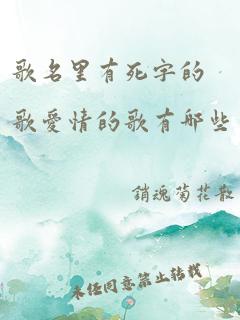 歌名里有死字的
歌愛情的歌有哪些
銷魂菊花散
未经同意禁止转载